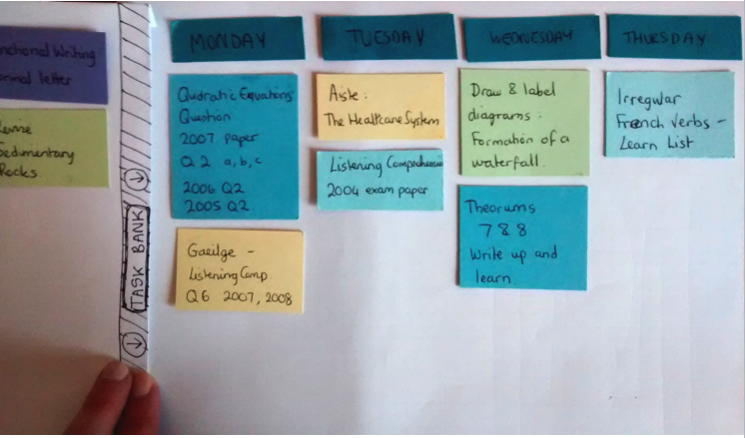 nctional Writing
ormal letter
Revise
Sedimentary
Rocks
TASK BANK
MONDAY
Qudratic Equations
Question
2007 paper
Q 2 a, b, c
2006 Q2
2005 Q2
Gaeilge -
Listening Comp
Q6 2007, 2008
TUESDAY
Aiste:
The Healthcare System
Listening Comprehension
2004 exam paper
WEDNESDAY
Draw & label
diagrams:
Formation of a
waterfall.
Theorums
7 & 8
Write up and
learn
THURSDAY
Irregular
French Verbs -
Learn List